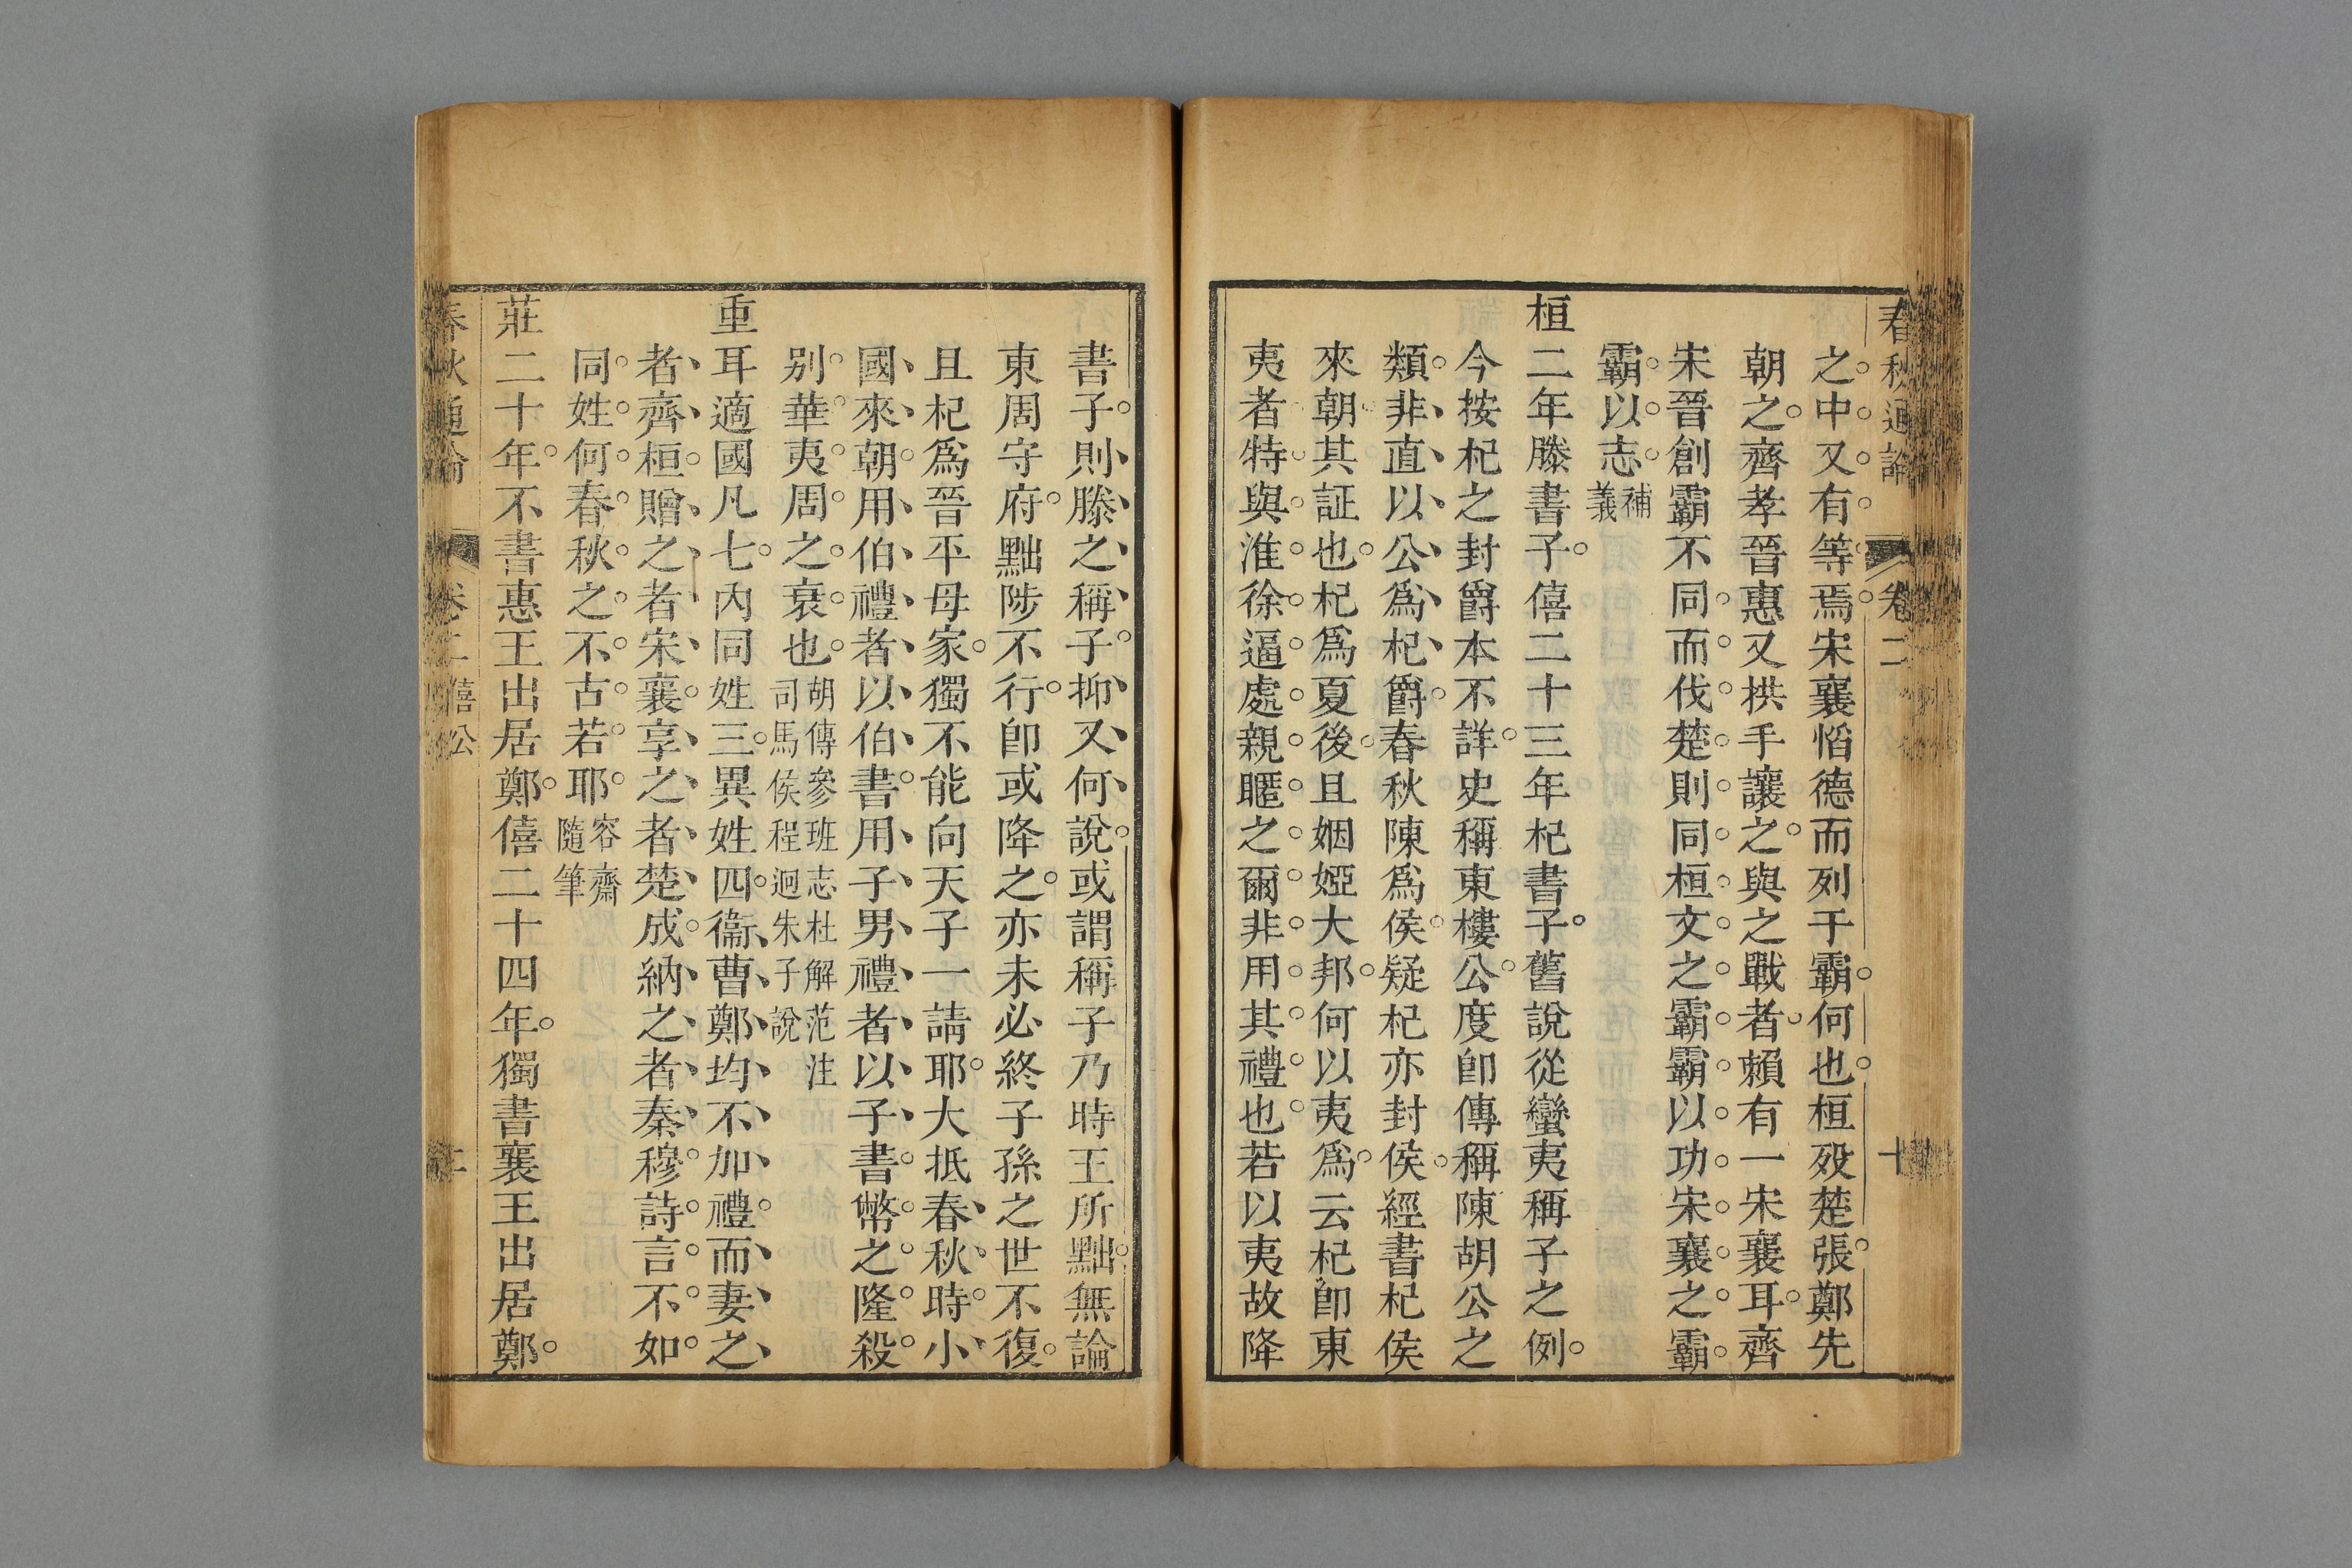 春秋通論 卷二 十
之中又有等焉宋襄慆德而列于霸何也桓歿楚張鄭先
朝之齊孝晉惠又拱手讓之與之戰者賴有一宋襄耳齊
宋晉創霸不同而伐楚則同桓文之霸霸以功宋襄之霸
霸以志補義
桓二年滕書子僖二十三年杞書子舊說從蠻夷稱子之例
今按杞之封爵本不詳史稱東樓公度卽傳稱陳胡公之
類非直以公爲杞爵春秋陳爲侯疑杞亦封侯經書杞侯
來朝其証也杞爲夏後且姻婭大邦何以夷爲云杞卽東
夷者特與淮徐逼處親暱之爾非用其禮也若以夷故降
書子則滕之稱子抑又何說或謂稱子乃時王所黜無論
東周守府黜陟不行卽或降之亦未必終子孫之世不復
且杞爲晉平母家獨不能向天子一請耶大抵春秋時小
國來朝用伯禮者以伯書用子男禮者以子書幣之隆殺
别華夷周之衰也胡傳參班志杜解范注司馬侯程迥朱子說
重耳適國凡七內同姓三異姓四衞曹鄭均不加禮而妻之
者齊桓贈之者宋襄享之者楚成納之者秦穆詩言不如
同姓何春秋之不古若耶容齋隨筆
莊二十年不書惠王出居鄭僖二十四年獨書襄王出居鄭
春秋通論 卷二 僖公 十